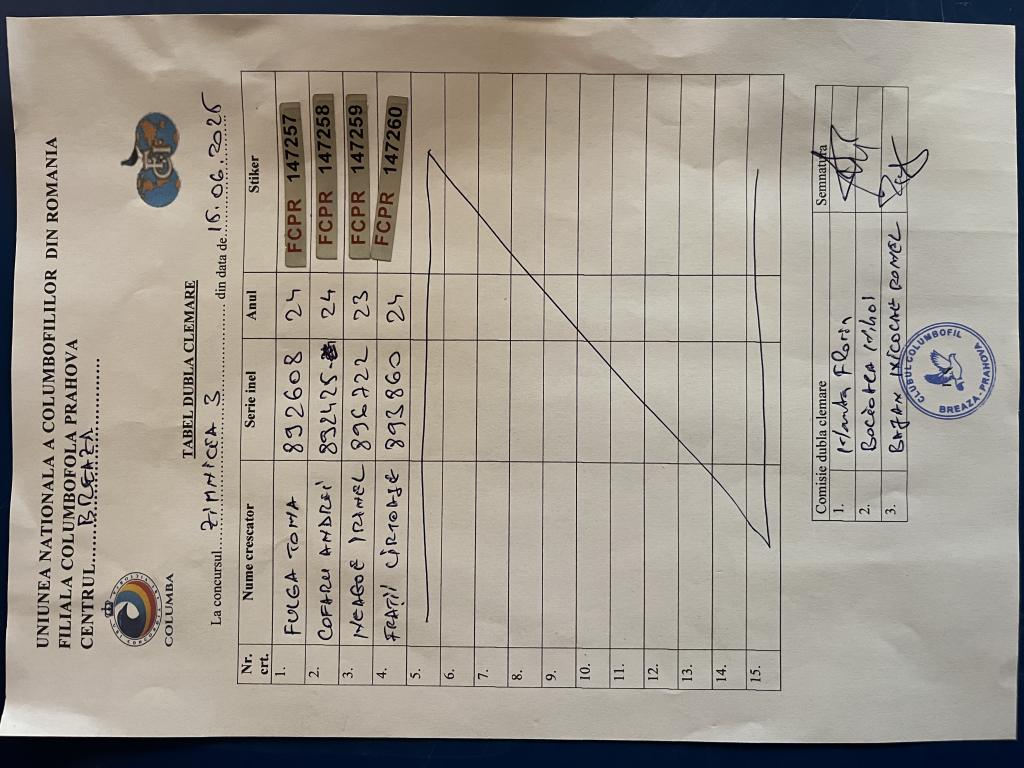 UNIUNEA NATIONALA A COLUMBOFILILOR DIN ROMANIA
FILIALA COLUMBOFOLA PRAHOVA
CENTRUL......BREAZA..................
COLUMBA
FCI
TABEL DUBLA CLEMARE
La concursul....ZIMNICEA 3.................... din data de 15.06.2025
Nr. crt. Nume crescator Serie inel Anul Stiker
1. FULGA TOMA 892608 24 FCPR 147257
2. COFARU ANDREI 892425 24 FCPR 147258
3. NEAGOE IRINEL 896722 23 FCPR 147259
4. FRAȚII CIRTOAJE 893860 24 FCPR 147260
5.
6.
7.
8.
9.
10.
11.
12.
13.
14.
15.
Comisie dubla clemare Semnatura
1. Florin
2.
3. ROMEL
CLUBUL COLUMBOFIL
BREAZA - PRAHOVA